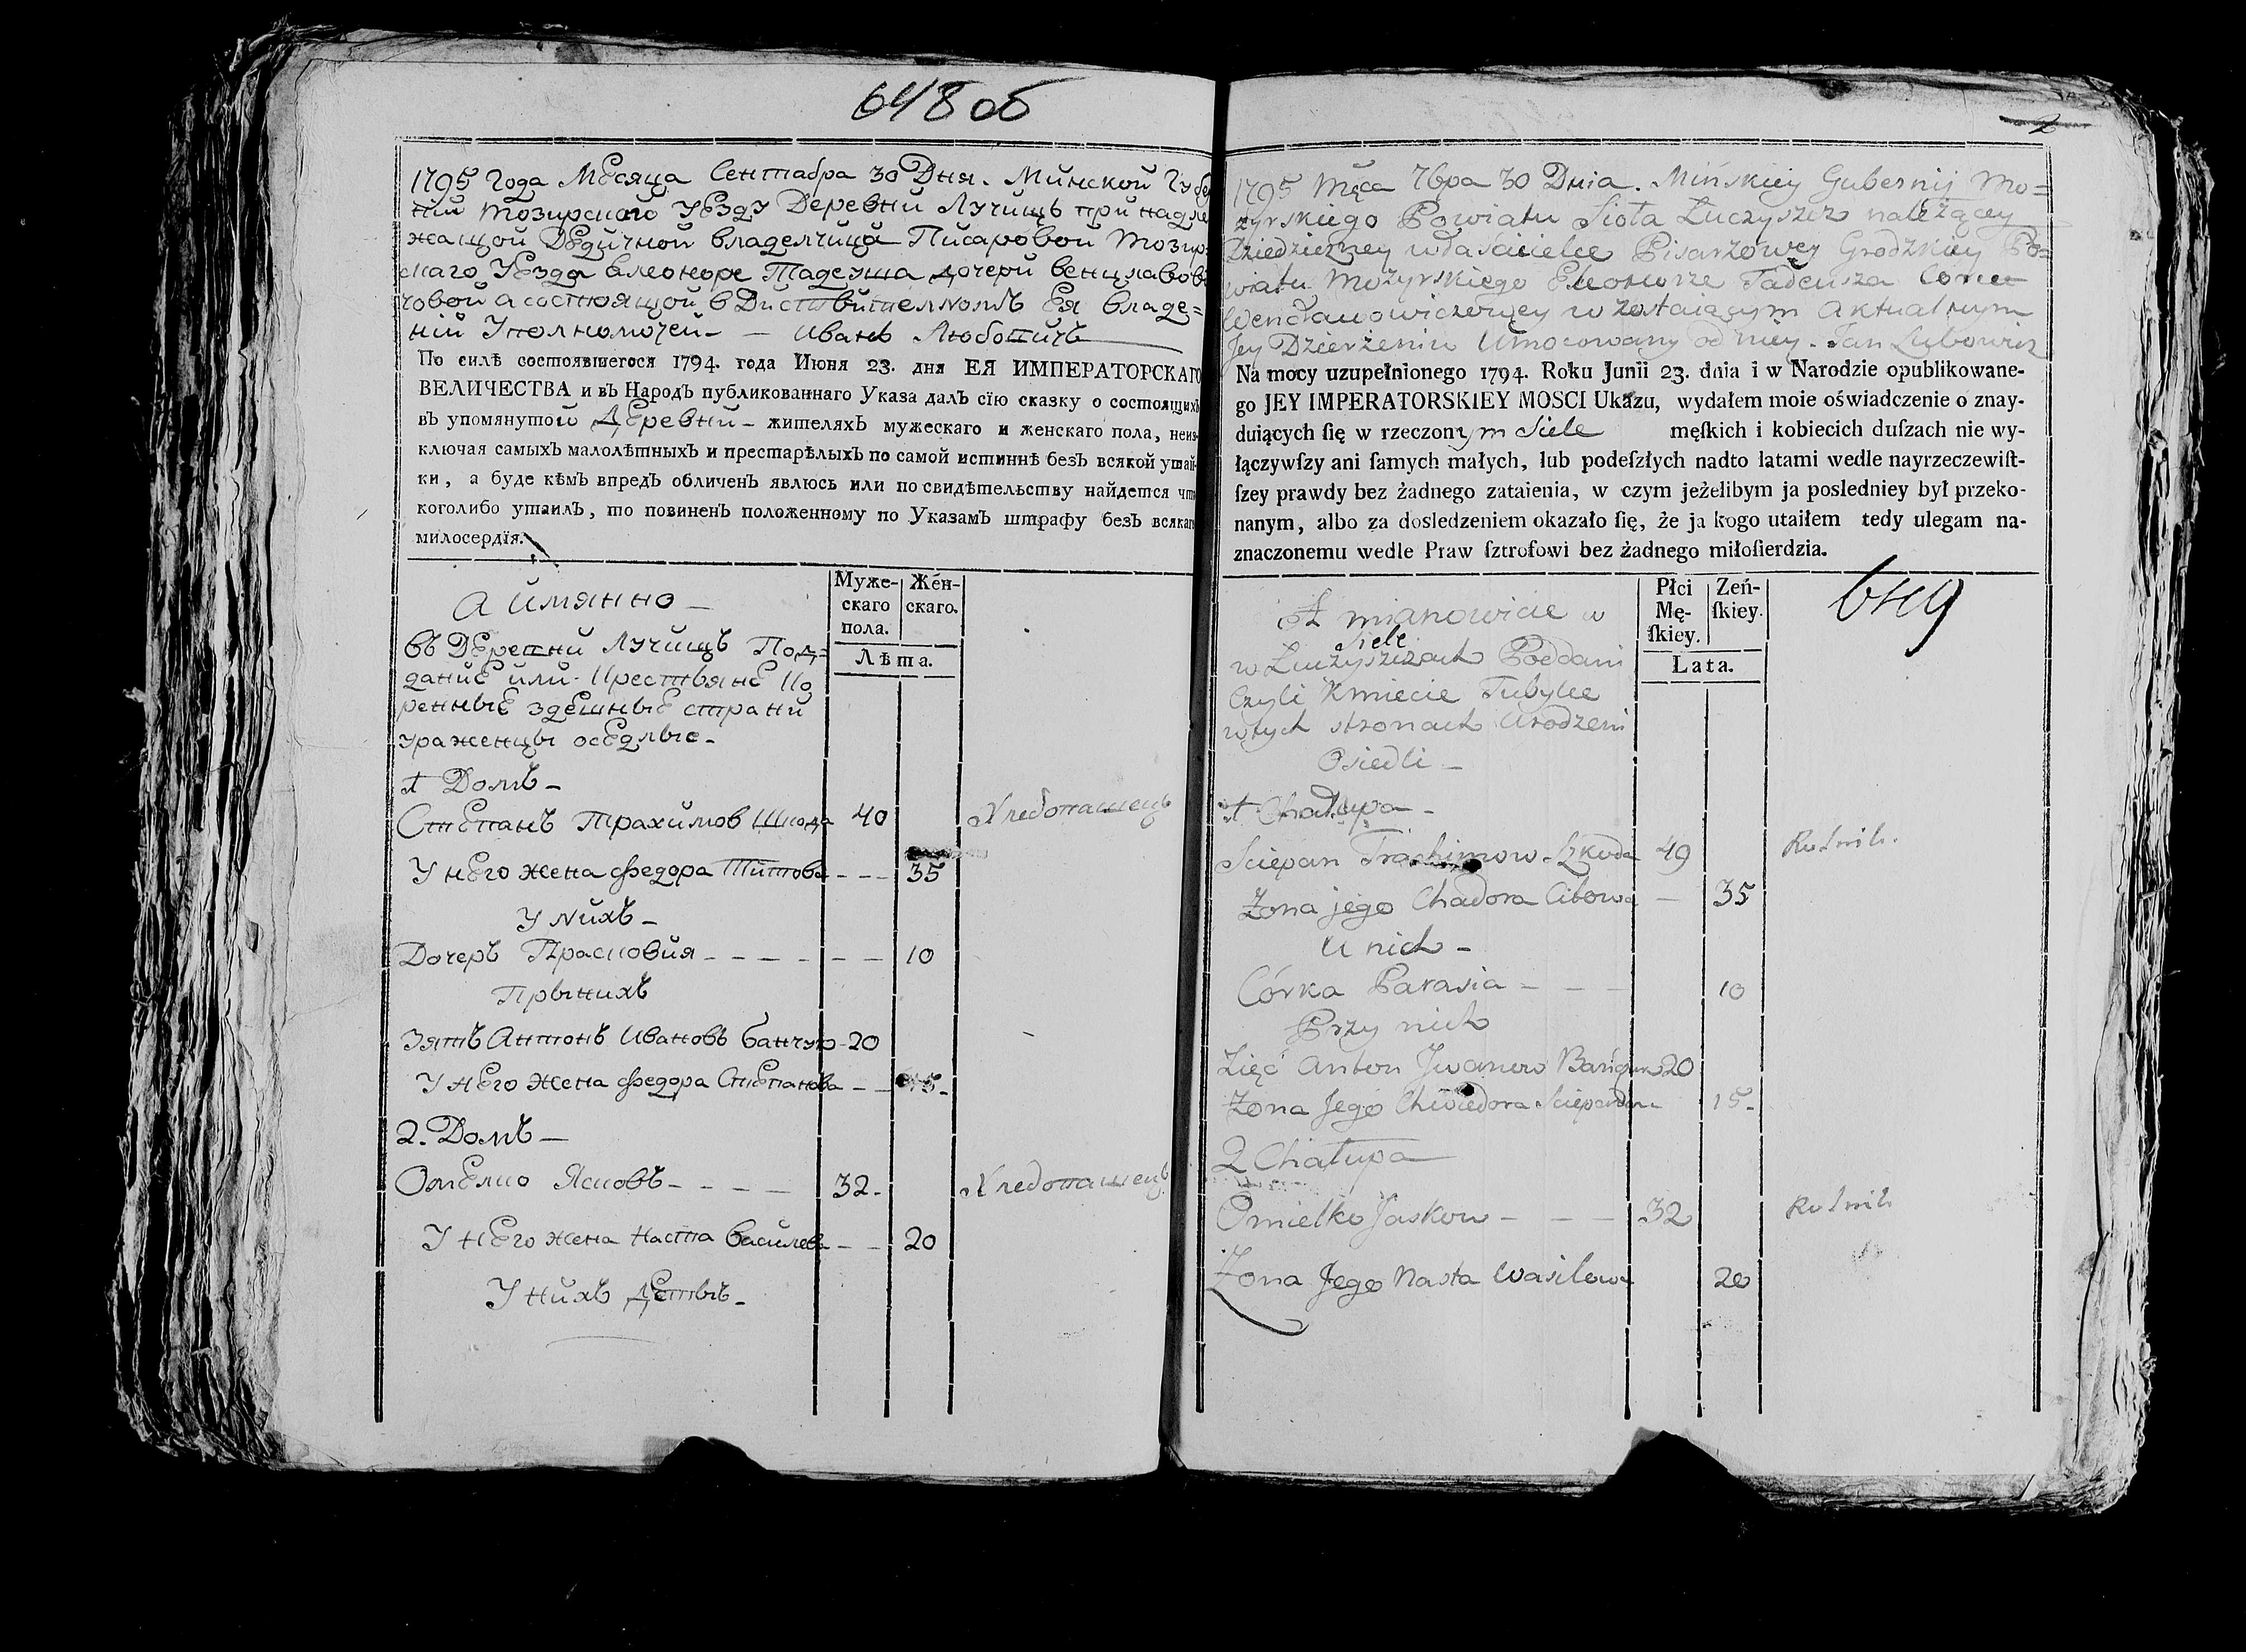 648 об
1795 Года Месяца Сентабра 30 Дня. Минской Губер
ний Мозирского Уезду Деревни Лучищъ принадле
жащой Дедичной владелчицы Писаровой Мозир=
скаго Уезда Елеоноре Тадеуша дочери Венцлавови
човой а состоящой в Диствителномъ Ея владе=
ній Уполномочен — Иванъ Любовичъ
По силѣ состоявшегося 1794. года Июня 23. дня ЕЯ ИМПЕРАТОРСКАГО
ВЕЛИЧЕСТВА и въ Народъ публикованнаго Указа далъ сїю сказку о состоящихъ
въ упомянутой Деревни - жителяхъ мужескаго и женскаго пола, неис
ключая самыхъ малолѣтныхъ и престарѣлыхъ по самой истиннѣ безъ всякой утай
ки, а буде кѣмъ впредъ обличенъ явлюсь или по свидѣтельству найдется что
коголибо утаилъ, то повиненъ положенному по Указамъ штрафу безъ всякаго
милосердїя.
Муже-
скаго
пола.
Жен-
скаго.
Лѣта.
А имянно —
въ Деревни Лучищъ Под=
дание или Крествяне Ко
ренные здешные страни
ураженцы оседлые -
1 Домъ -
Степанъ Трахимов Шкода 40
У него жена Федора Титова - - - 35
У нихъ -
Дочеръ Прасковия - - - - - - 10
При нихъ
Зятъ Антонъ Ивановъ Банчук - 20
У него жена Федора Степанова - - 15 -
2. Домъ —
Омелко Ясковъ - - - - 32 -
У него жена Наста Василева - - 20
У нихъ дети -
2
1795 Męca 7bра 30 Dnia. Mińskiey Gubernij Mo=
zyrskiego Powiatu Sioła Łuczyszcz należącey
Dziedziczney właścicielce Pisarzowey Grodzkiey Po=
wiatu Mozyrskiego Eleonorze Tadeusza Corce
Wencławowiczowey w zostaiącym Aktualnym
Jey Dzierżeniu Umocowany od niey - Jan Lubowicz
Na mocy uzupełnionego 1794. Roku Junii 23. dnia i w Narodzie opublikowane-
go JEY IMPERATORSKIEY MOSCI Ukazu, wydałem moie oświadczenie o znay-
duiących ſię w rzeczonym Siele męſkich i kobiecich duſzach nie wy-
łączywſzy ani ſamych małych, lub podeſzłych nadto latami wedle nayrzeczewiſt-
ſzey prawdy bez żadnego zataienia, w czym jeżelibym ja posledniey był przeko-
nanym, albo za dosledzeniem okazało ſię, że ja kogo utaiłem tedy ulegam na-
znaczonemu wedle Praw ſztrofowi bez żadnego miłoſierdzia.
Płci
Mę-
ſkiey.
Zeń-
ſkiey.
Lata.
649
A mianowicie w
Siele
w Łuczyszczach Poddani
Czyli Kmiecie Tubylce
w tych stronach Urodzeni
Osiedli -
1 Chałupa -
Sciepan Trachimow Szkoda 49
Żona jego Chadora Citowa — 35
U nich -
Córka Parasia - - - 10
Przy nich
Zięć Anton Jwanow Bańczuk 20
Żona Jego Chwiedora Sciepanowa 15 -
2 Chałupa
Omielko Jaskow - - - 32
Żona Jego Nasta Wasilowa 20